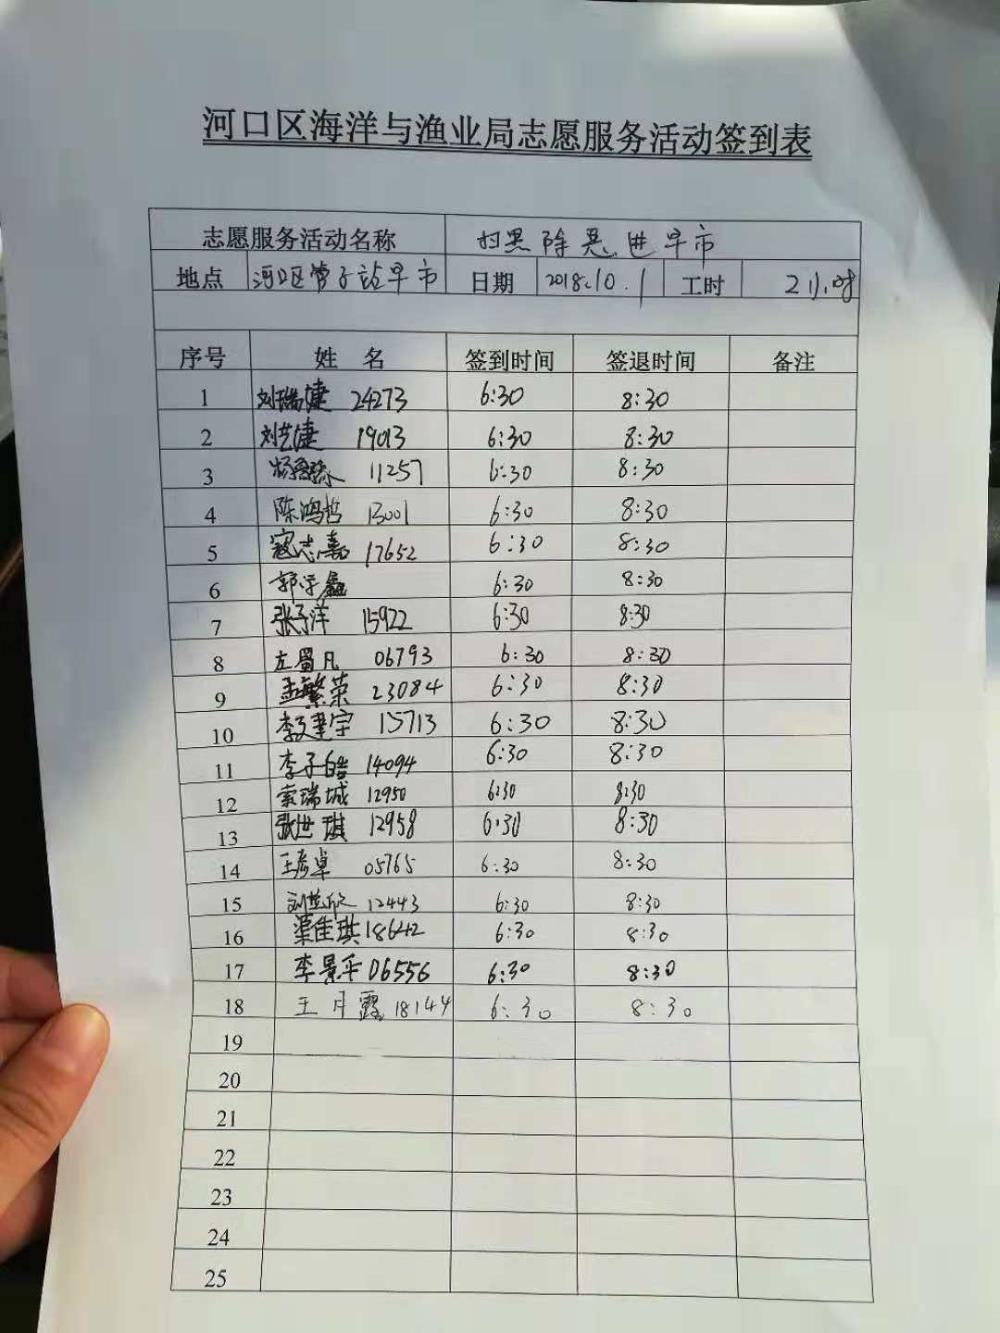 河口区海洋与渔业局志愿服务活动签到表
志愿服务活动名称 扫黑除恶进早市
地点 河口区管子站早市 日期 2018.10.1 工时 2小时
序号 姓 名 签到时间 签退时间 备注
1 刘瑞婕 24273 6:30 8:30
2 刘艺婕 19013 6:30 8:30
3 11257 6:30 8:30
4 陈鸿哲 13001 6:30 8:30
5 寇志嘉 17652 6:30 8:30
6 郭学鑫 6:30 8:30
7 张子洋 15922 6:30 8:30
8 左凡 06793 6:30 8:30
9 孟繁荣 23084 6:30 8:30
10 李建宇 15713 6:30 8:30
11 李子皓 14094 6:30 8:30
12 索瑞城 12950 6:30 8:30
13 张世琪 12958 6:30 8:30
14 王彦卓 05765 6:30 8:30
15 刘欣 12443 6:30 8:30
16 渠佳琪 18642 6:30 8:30
17 李景平 06556 6:30 8:30
18 王月露 18144 6:30 8:30
19
20
21
22
23
24
25